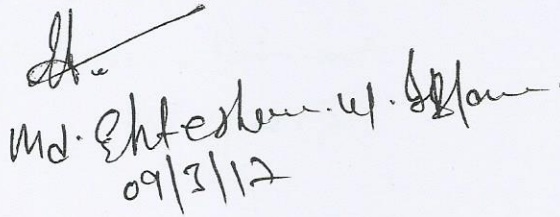 Md. Ehtesham. Ul. Islam
09/3/12